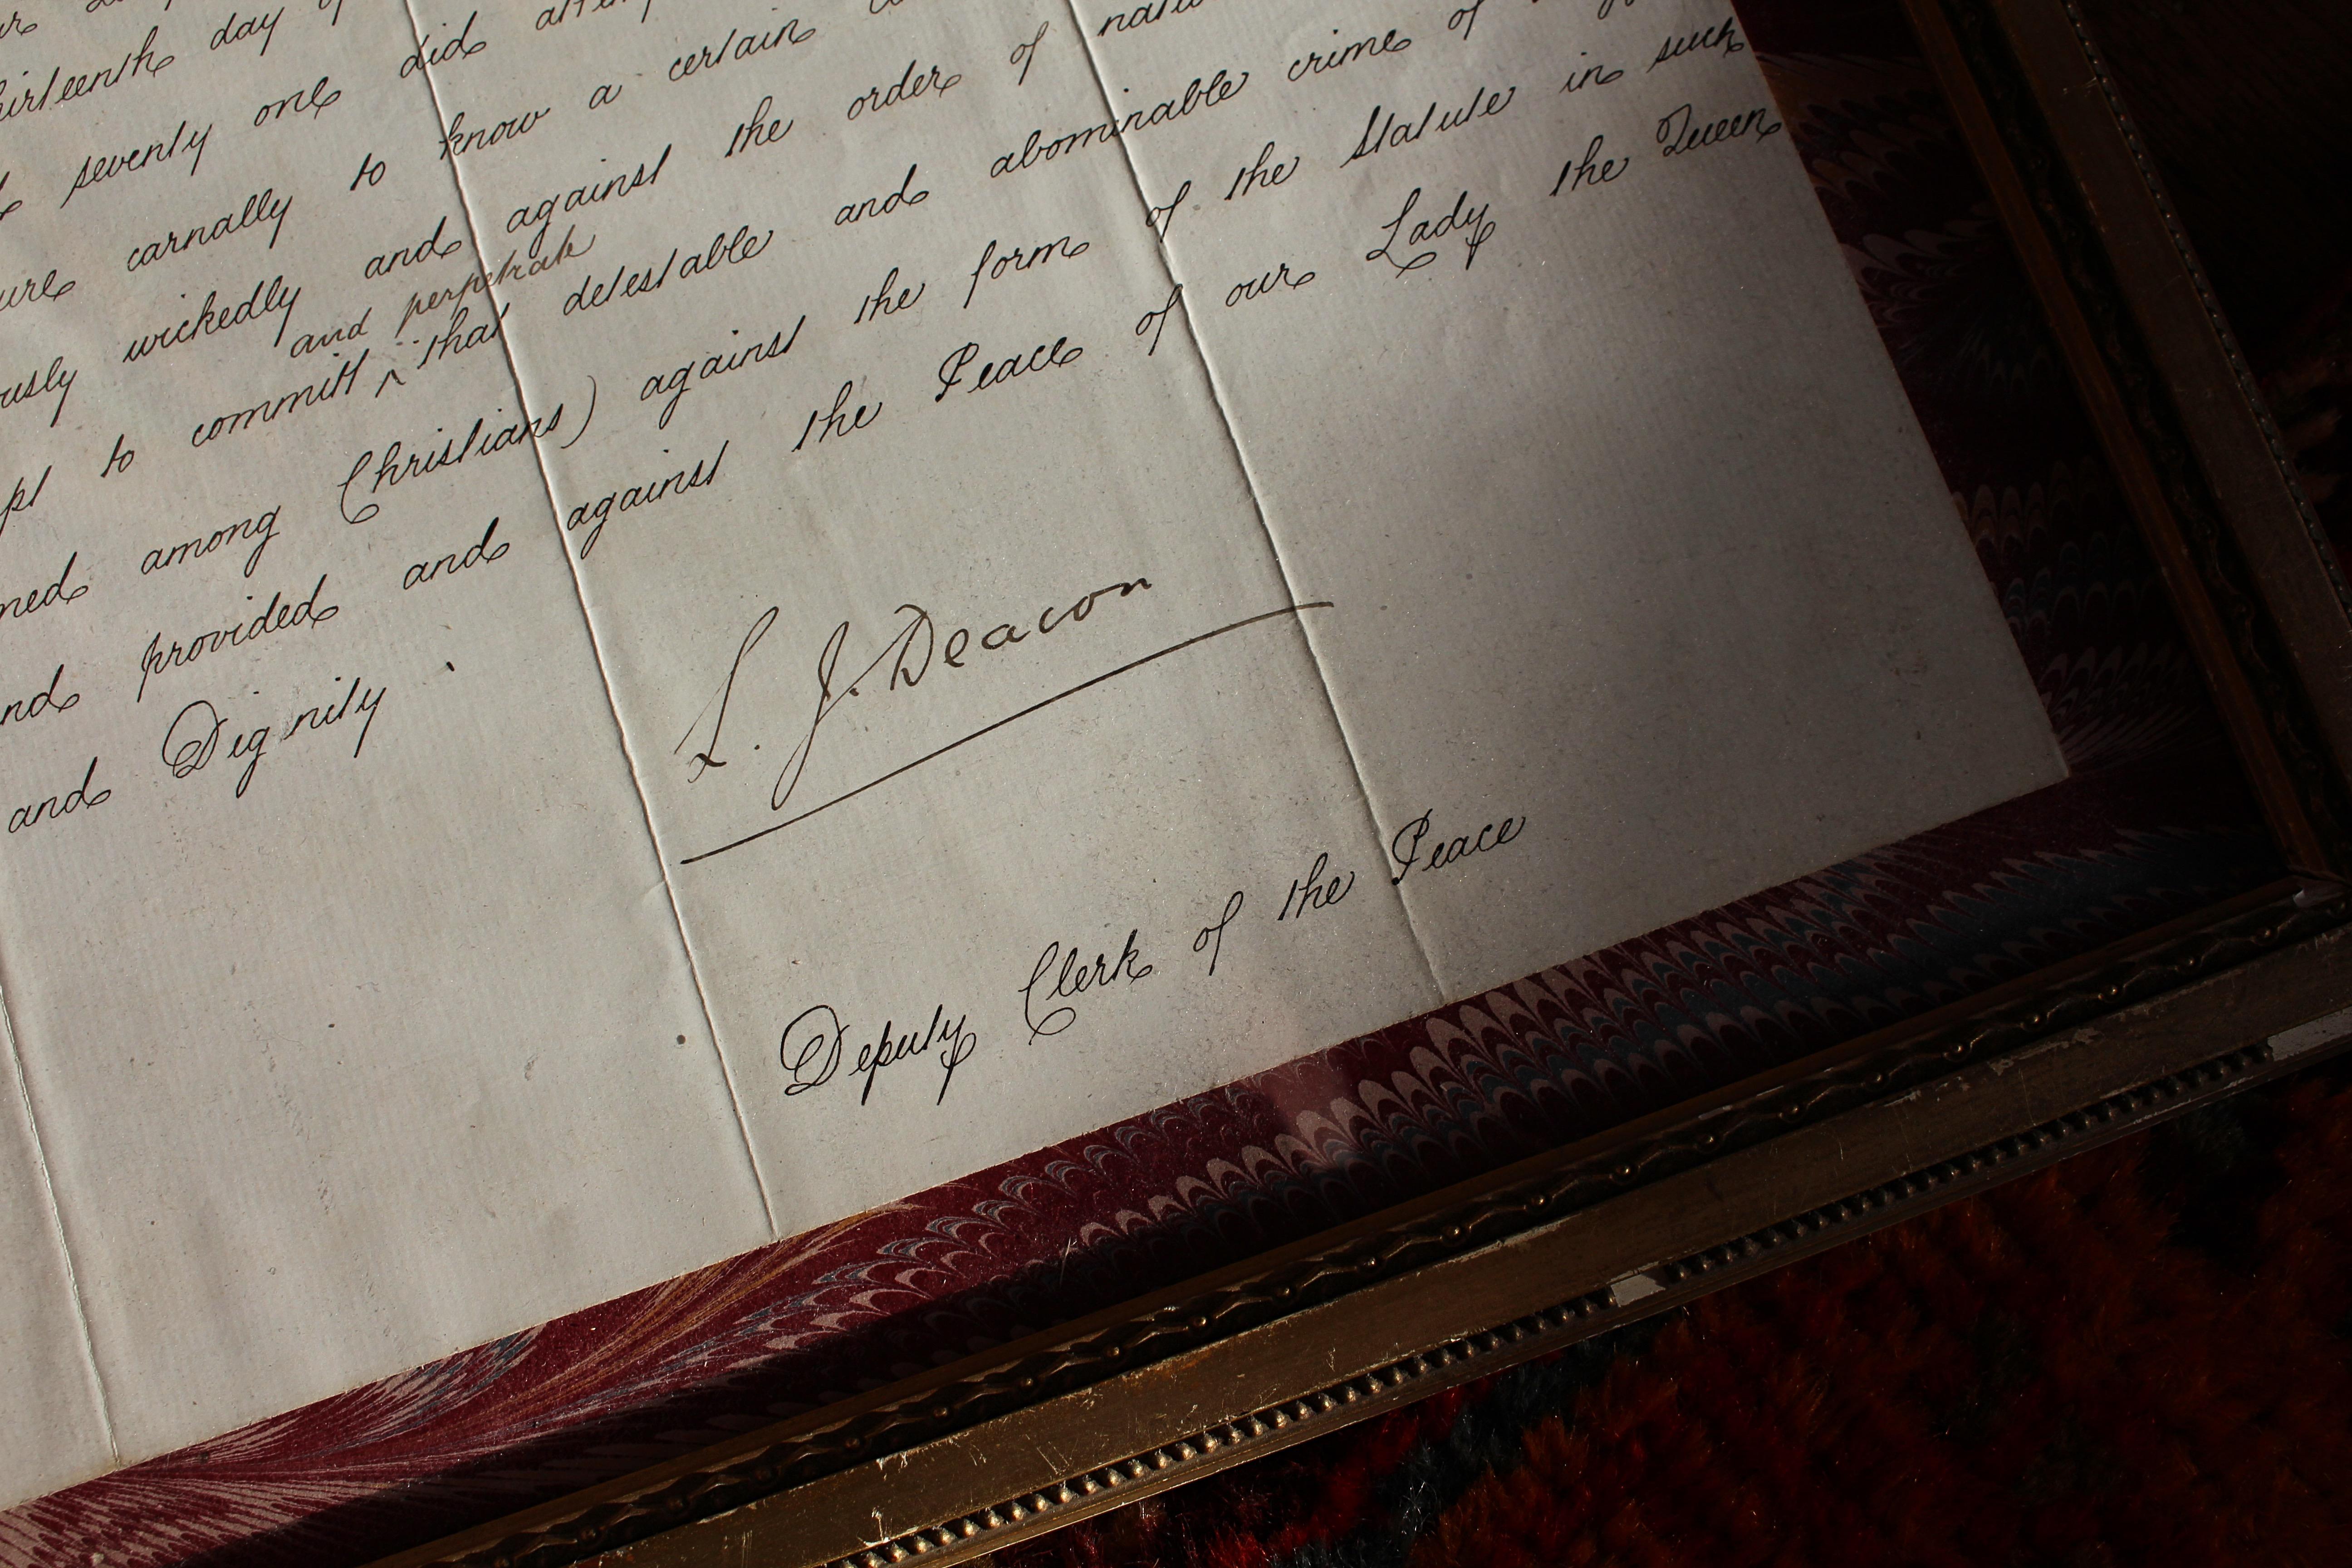 thirteenth day
seventy one did
carnally to know a certain
wickedly and against the order of
and perpetrate
to committ ^ that detestable and abominable crime of
among Christians) against the form of the Statute in such
provided and against the Peace of our Lady the Queen
and Dignity.
L. J. Deacon
Deputy Clerk of the Peace